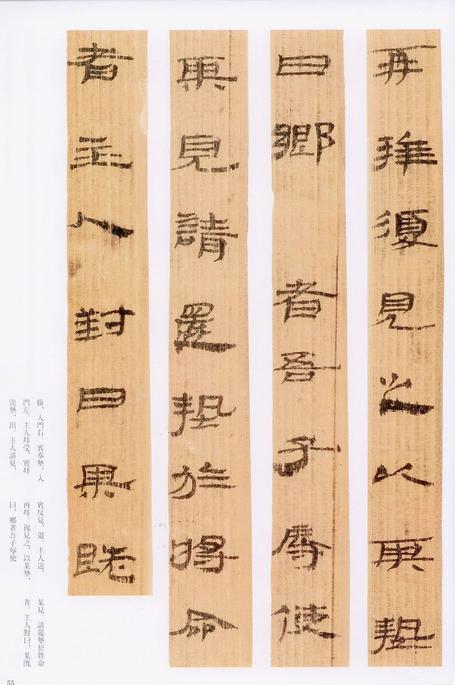 再拜復見之以某摯
曰鄉者吾子辱使
某見請還摯於將命
者主人對曰某既
揖，入門右。賓奉摯，入
門左。主人拜受，賓拜
送摯，出。主人請見，
賓反見，退。主人送，
再拜。復見之，以某摯，
曰：鄉者吾子辱使
某見，請還摯於將命
者。主人對曰：某既
55